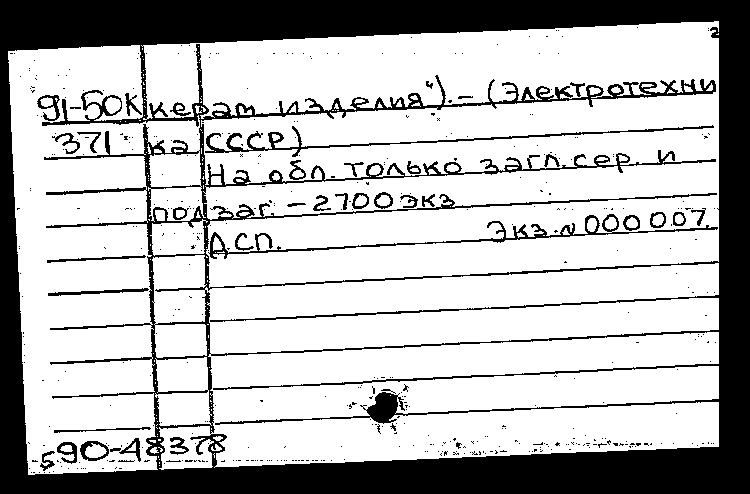 2
91-50К керам. изделия"). – (Электротехни
371 ка СССР)
На обл. только загл. сер. и
подзаг. – 2700 экз
ДСП. Экз. № 000007.
590-48378